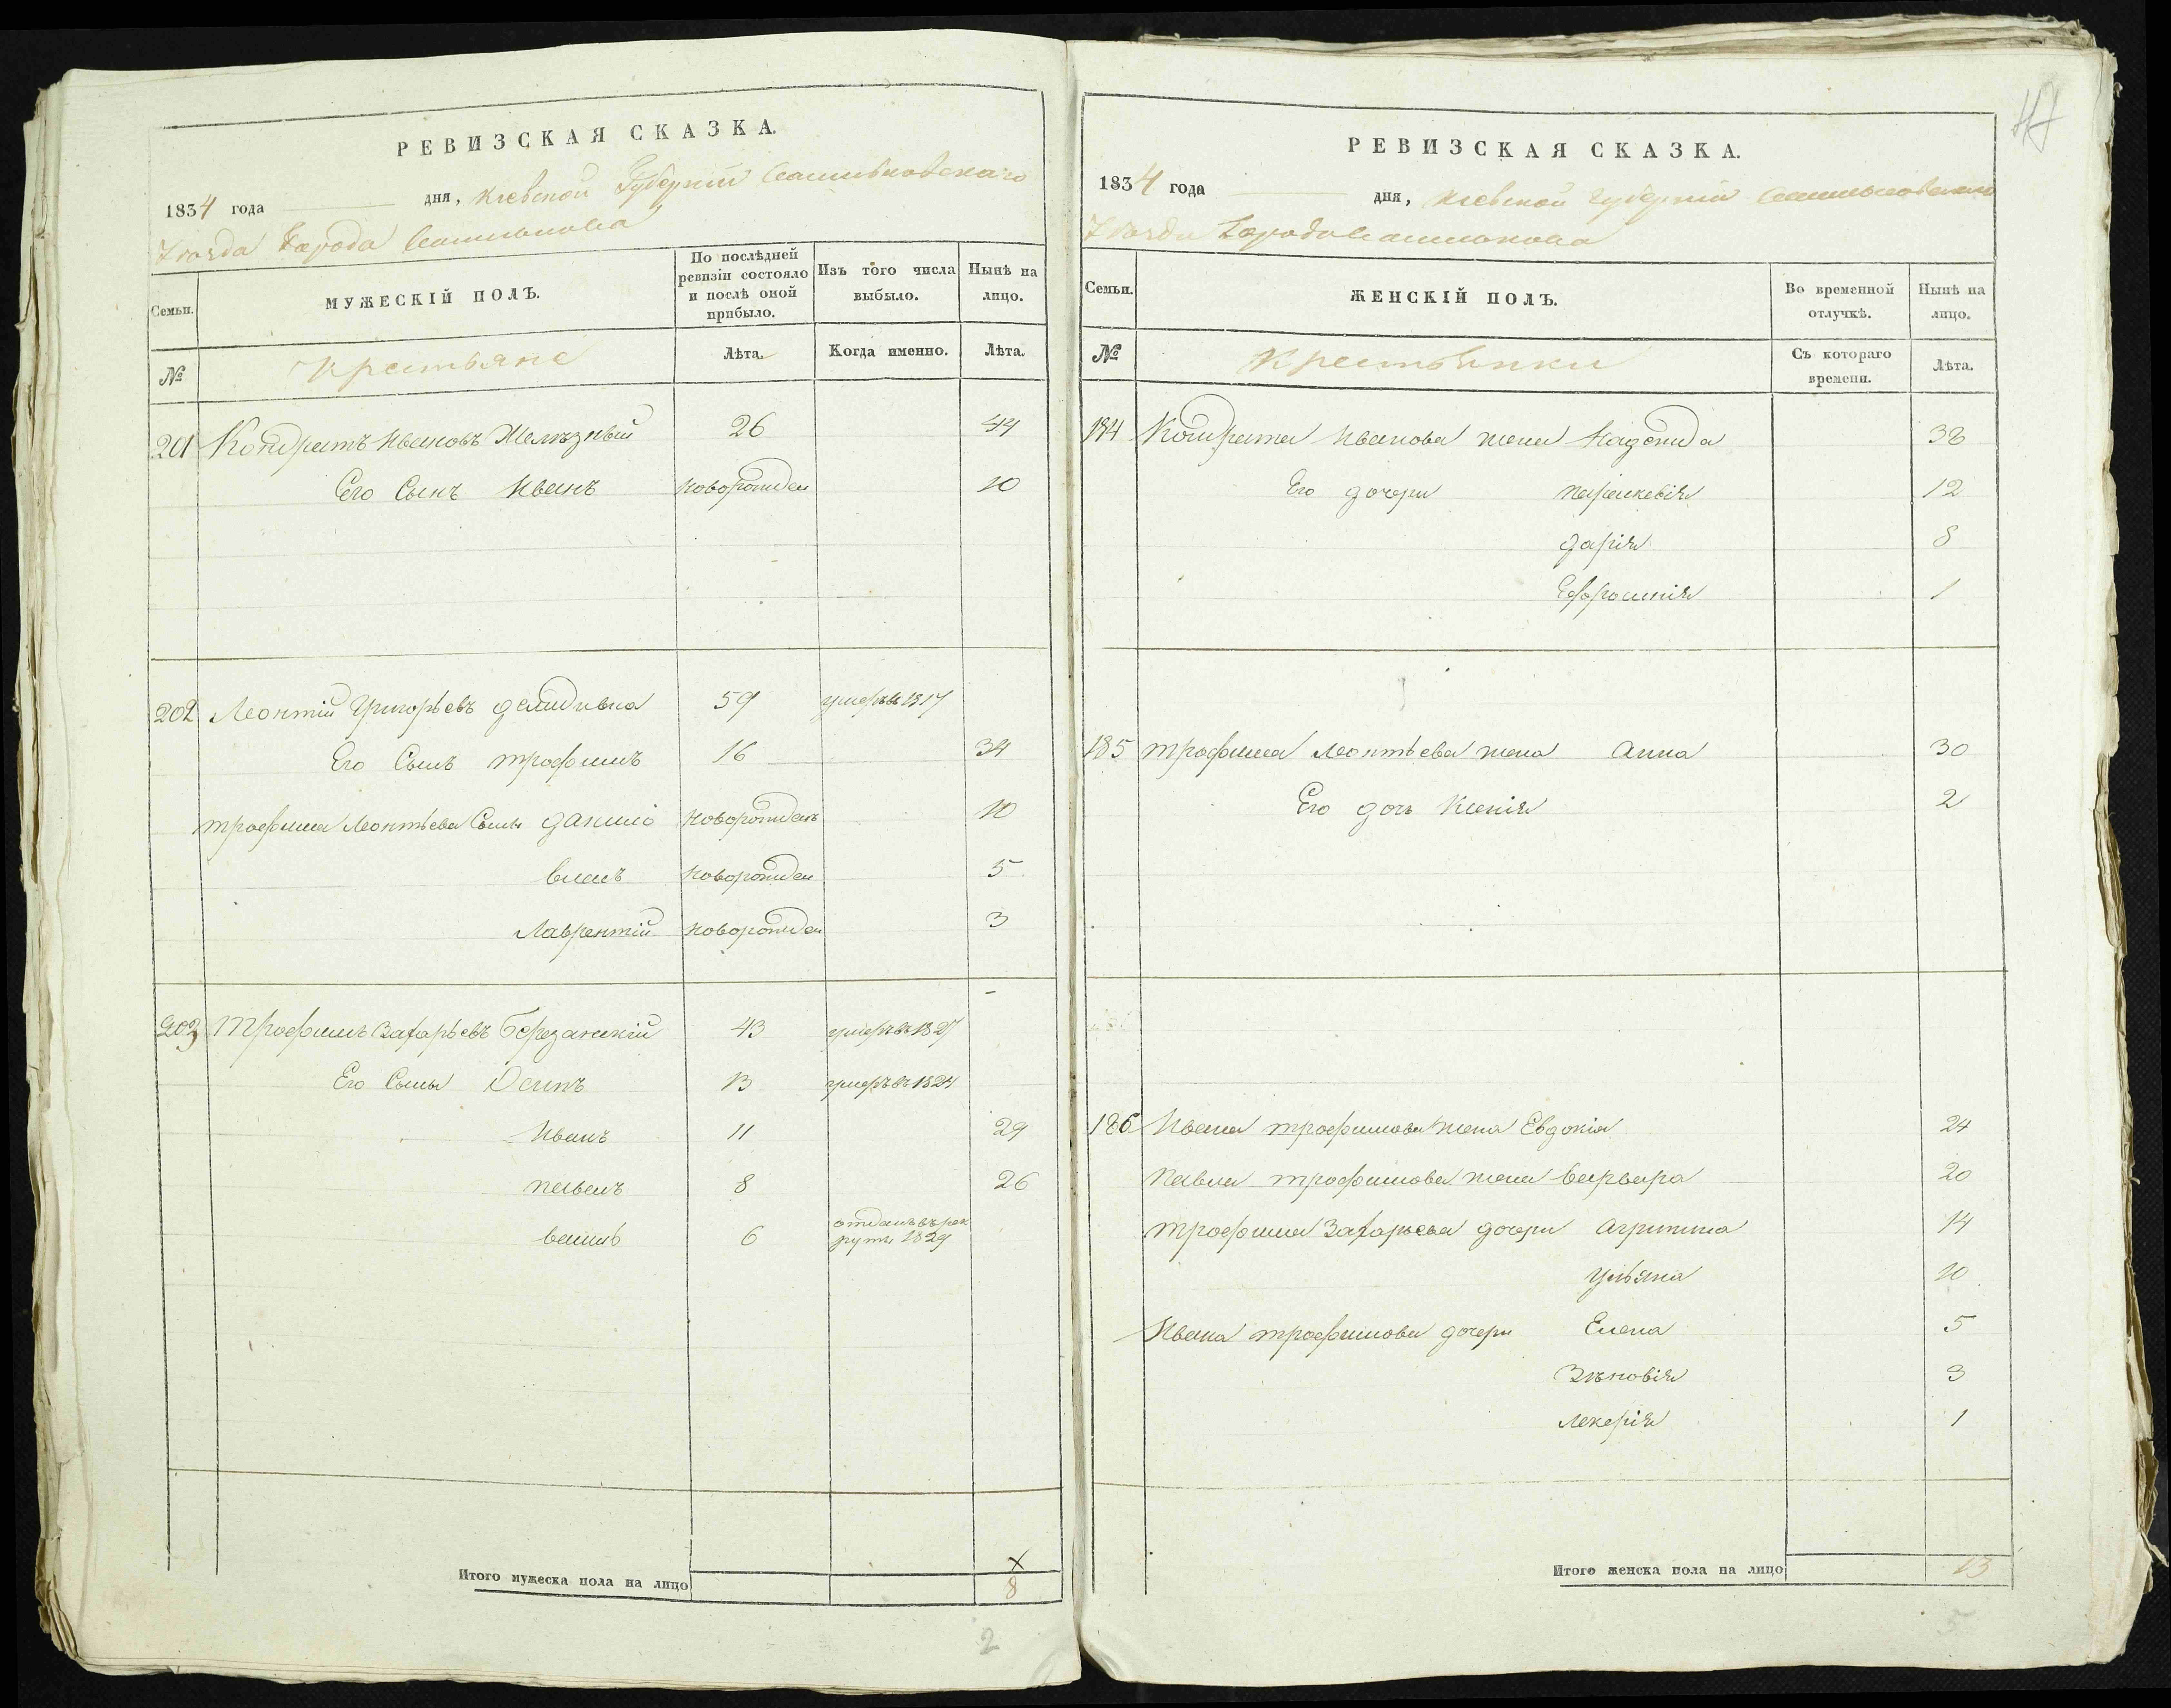 РЕВИЗСКАЯ СКАЗКА.
1834 года дня, Киевской Губерніи Васильковскаго
Уезда Города Василькова
Семьи.
МУЖЕСКІЙ ПОЛЪ.
По послѣдней ревизіи состояло и послѣ оной прибыло.
Изъ того числа выбыло.
Нынѣ на лицо.
№
Крестьяне
Лѣта.
Когда именно.
Лѣта.
201 Кондратъ Ивановъ Желѣзный 26 44
Его Сынъ Иванъ новорожден 10
202 Леонтій Григорьевъ 59 умеръ въ 1817
Его Сынъ трофимъ 16 34
трофима Леонтьева Сыны данило новорожденъ 10
новорожден 5
Лаврентій новорожден 3
203 Трофимъ Захарьевъ Березанскій 43 умеръ въ 1827
Его Сыны Осипъ 13 умеръ въ 1824
Иванъ 11 29
павелъ 8 26
6 отданъ въ рек
руты 1829
Итого мужеска пола на лицо
х
8
2
РЕВИЗСКАЯ СКАЗКА.
1834 года дня, Киевской Губерніи Васильковскаго
Уезда Города Василькова
Семьи.
ЖЕНСКІЙ ПОЛЪ.
Во временной отлучкѣ.
Нынѣ на лицо.
№
Крестьянки
Съ котораго времени.
Лѣта.
184 Кондрата Иванова жена 38
Его дочери параскевія 12
дарія 8
Ефросинія 1
185 трофима Леонтьева жена Анна 30
Его дочь Ксенія 2
186 Ивана трофимова жена Евдокія 24
Павла трофимова жена варвара 20
трофима Захарьева дочери Агрипина 14
ульяна 10
Ивана трофимова дочери Елена 5
Зѣновія 3
лекерія 1
Итого женска пола на лицо 13
5